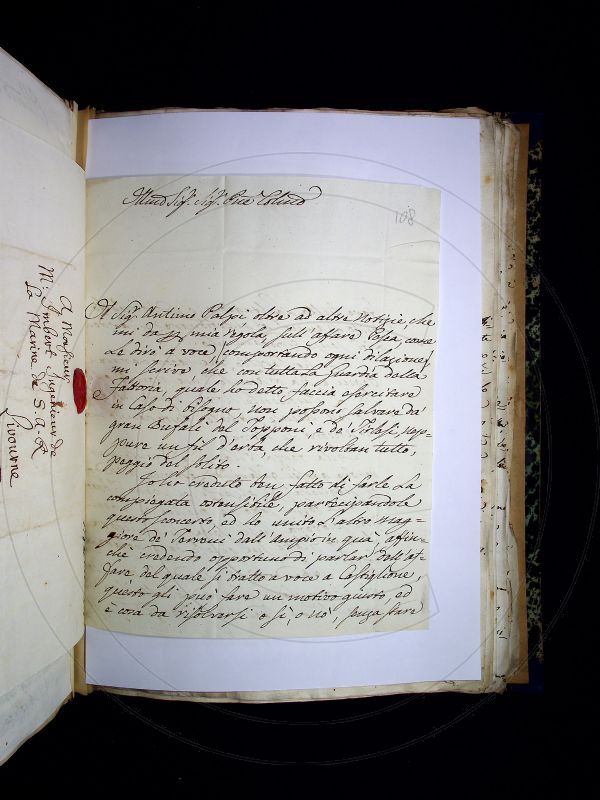 A Monsieur
M.r Imbert Ingenieur de
La Marine de S. A. R.
Livourne
108
Illmo Sig.r Sig.r Pne Colmo
Il Sig.r Antimo Palpi oltre ad altre Notizie, che
mi da p mia regola sull'affare Pesca, come
Le dirò a voce comportando ogni dilazione
mi scrive che con tutta La Guardia della
Fattoria, quale ho detto faccia esercitare
in Caso di bisogno, non possono salvare da
gran Bufali del Topponi, e de' nep=
pure un fil d'erba che rivoltan tutto,
peggio del solito.
Io ho creduto ben fatto di farle La
compiegata ostensibile, partecipandole
questo concerto, ed ho unito L'altro mag=
giore de' Terreni dall'ampio in qua, affin=
chè credendo opportuno di parlar dell'af=
fare del quale si trattò a voce a Castiglione,
questo gli può fare un motivo giusto, ed
è cosa da risolversi o sì, o nò, senza stare